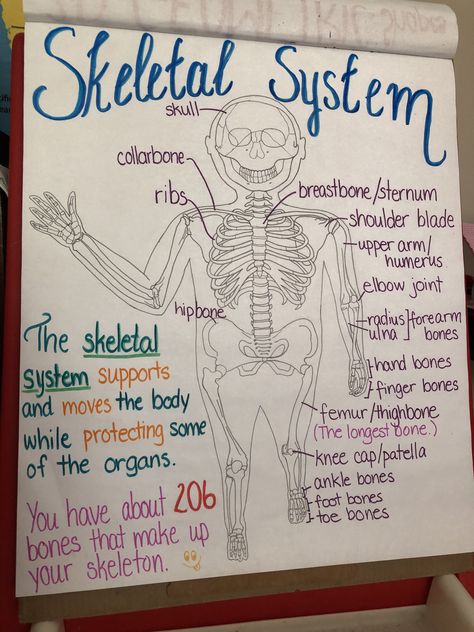 Skeletal System
skull
collarbone
ribs
breastbone/sternum
shoulder blade
upper arm/
humerus
elbow joint
hipbone
radius
ulna
forearm
bones
hand bones
finger bones
femur/thighbone
(The longest bone.)
knee cap/patella
ankle bones
foot bones
toe bones
The skeletal
system supports
and moves the body
while protecting some
of the organs.
You have about 206
bones that make up
your skeleton.